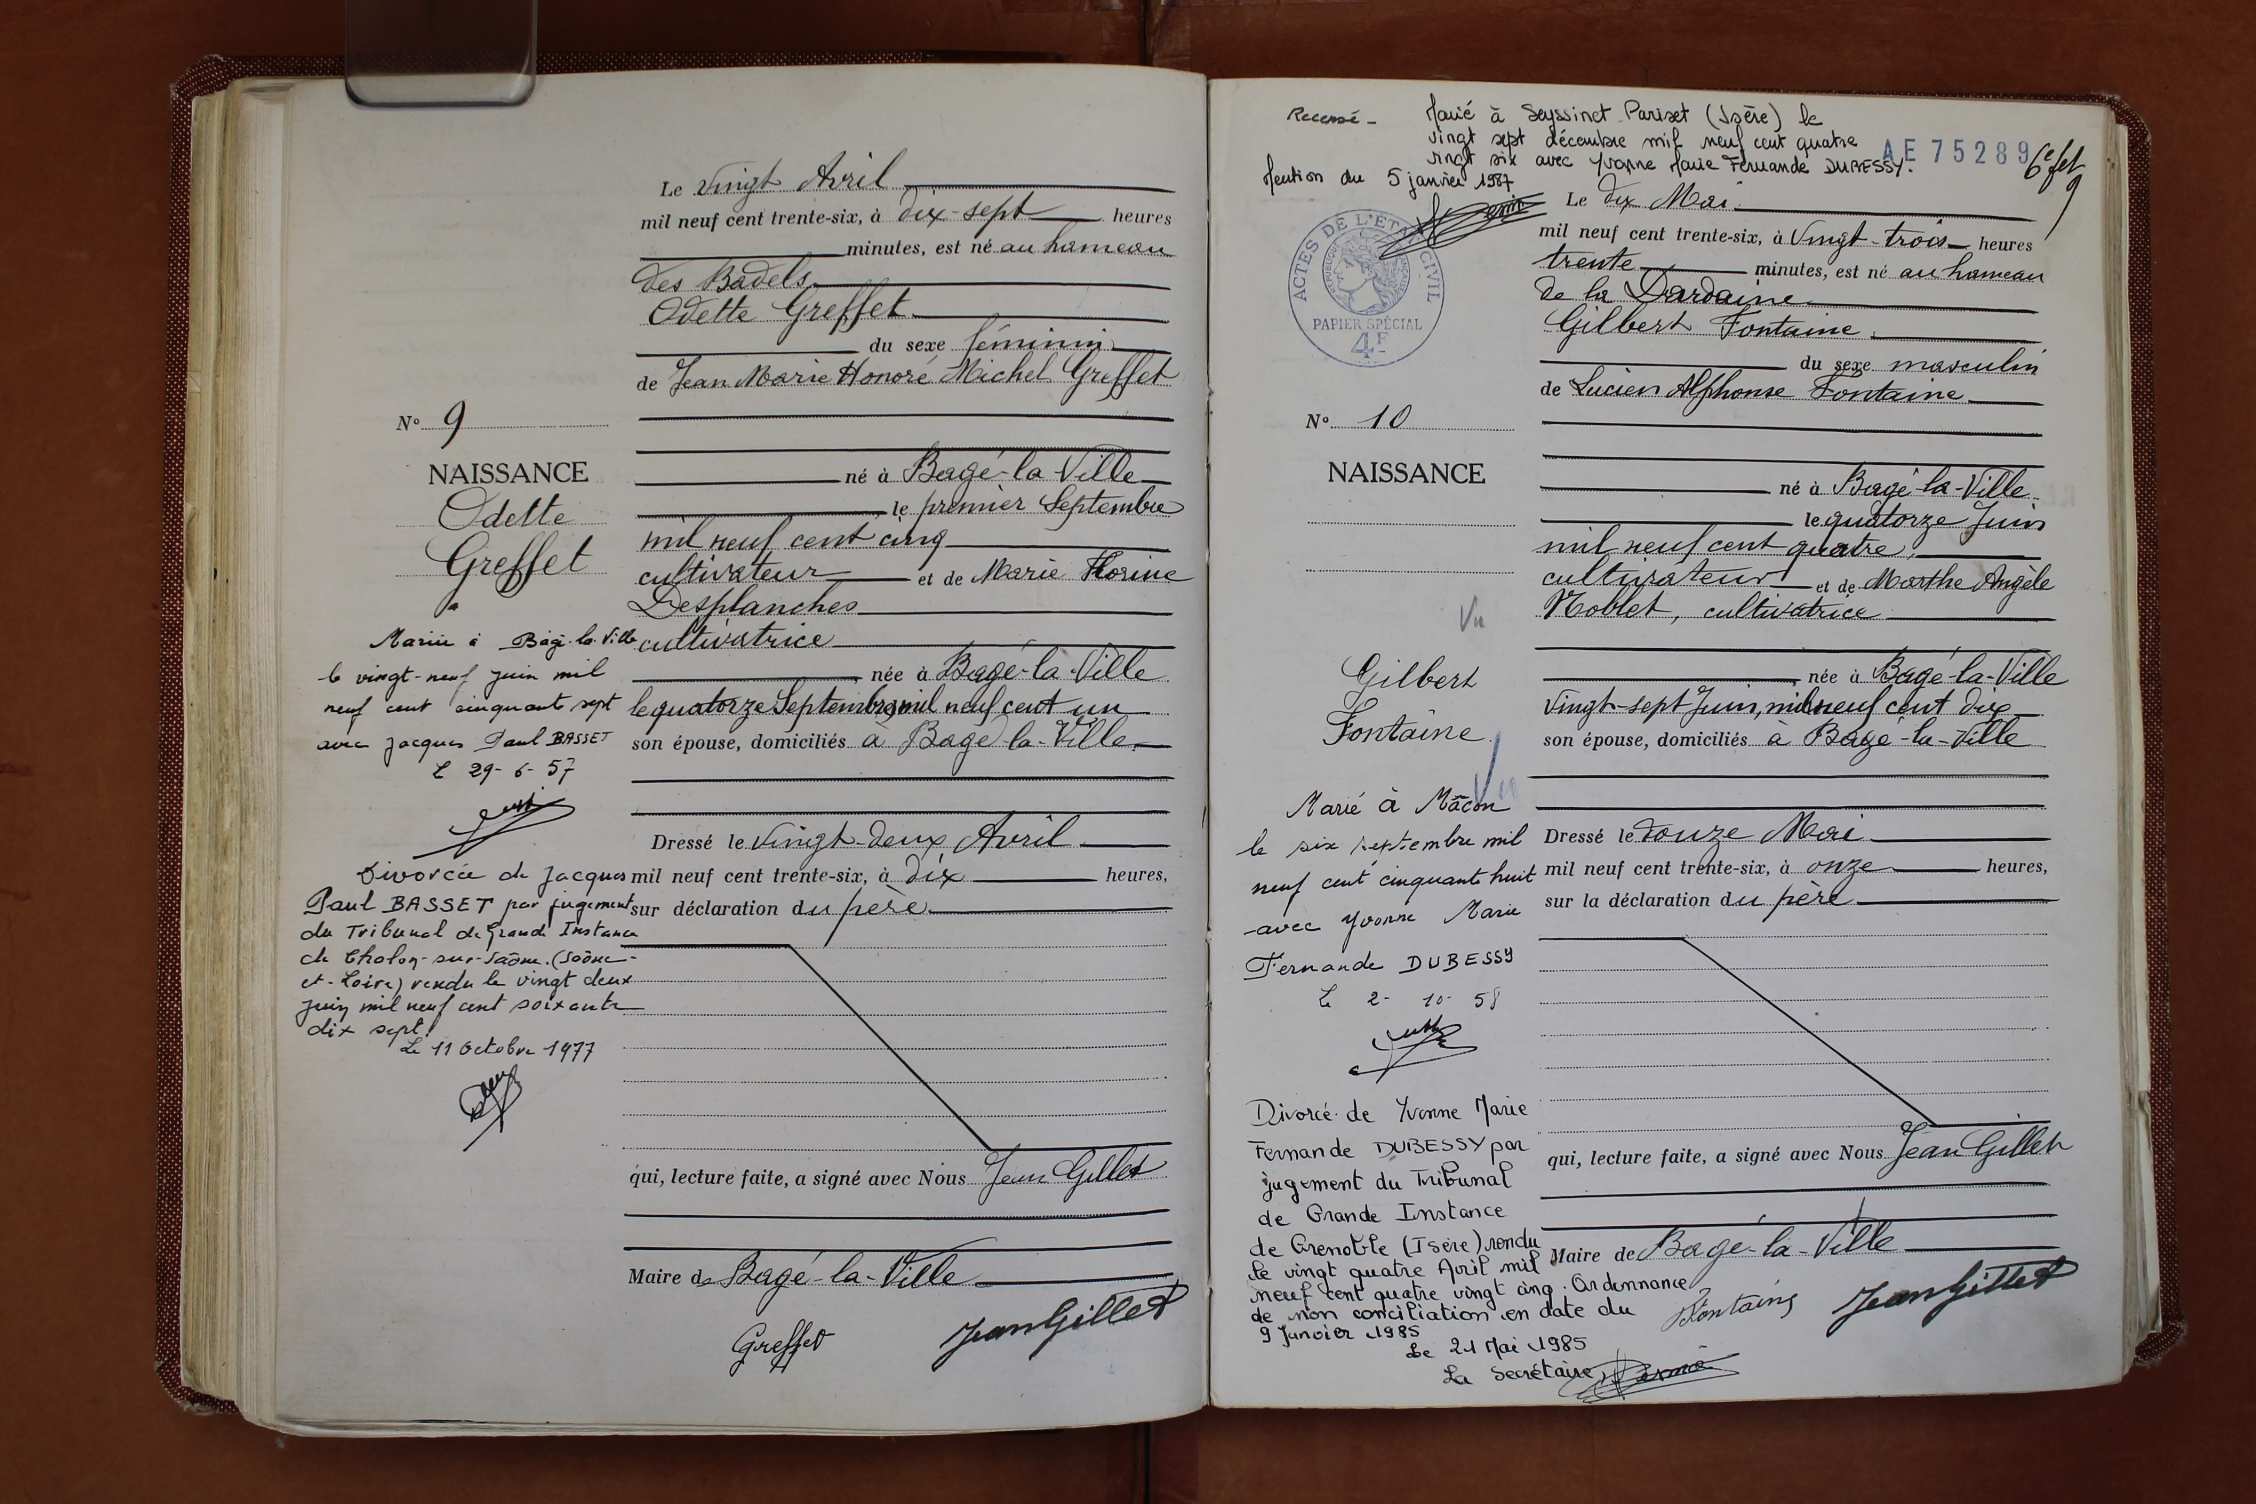 Le Vingt Avril
mil neuf cent trente-six, à dix-sept heures
minutes, est né au hameau
des Badels
Odette Greffet
du sexe féminin
de Jean Marie Honoré Michel Greffet
N° 9
NAISSANCE
Odette
Greffet
né à Bagé-la-Ville
le premier Septembre
mil neuf cent cinq
cultivateur et de Marie Florine
Desplanches
cultivatrice
née à Bagé-la-Ville
le quatorze Septembre mil neuf cent un
son épouse, domiciliés à Bagé-la-Ville
Mariée à Bagé-la-Ville
le vingt-neuf juin mil
neuf cent cinquante sept
avec Jacques Paul BASSET
Le 29-6-57
Dressé le Vingt-deux Avril
mil neuf cent trente-six, à dix heures,
sur déclaration du père
Divorcée de Jacques
Paul BASSET par jugement
du Tribunal de Grande Instance
de Chalon-sur-Saône (Saône-
et-Loire) rendu le vingt deux
juin mil neuf cent soixante
dix sept.
Le 11 Octobre 1977
qui, lecture faite, a signé avec Nous Jean Gillet
Maire de Bagé-la-Ville
Greffet Jean Gillet
Recensé - Marié à Seyssinet Pariset (Isère) le
vingt sept décembre mil neuf cent quatre
vingt six avec Yvonne Marie Fernande DUBESSY.
Mention du 5 janvier 1987
AE 75289
6e fet
9
ACTES DE L'ETAT CIVIL
PAPIER SPÉCIAL
4F
Le dix Mai
mil neuf cent trente-six, à Vingt-trois heures
trente minutes, est né au hameau
de la Dardaine
Gilbert Fontaine
du sexe masculin
de Lucien Alphonse Fontaine
N° 10
NAISSANCE
né à Bagé-la-Ville
le quatorze Juin
mil neuf cent quatre,
cultivateur et de Marthe Angèle
Noblet, cultivatrice
Vu
Gilbert
Fontaine
née à Bagé-la-Ville
Vingt-sept Juin, mil neuf cent dix
son épouse, domiciliés à Bagé-la-Ville
Vu
Marié à Mâcon
le six septembre mil
neuf cent cinquante huit
avec Yvonne Marie
Fernande DUBESSY
Le 2-10-58
Dressé le douze Mai
mil neuf cent trente-six, à onze heures,
sur la déclaration du père
Divorcé de Yvonne Marie
Fernande DUBESSY par
jugement du Tribunal
de Grande Instance
de Grenoble (Isère) rendu
le vingt quatre Avril mil
neuf cent quatre vingt cinq. Ordonnance
de non conciliation en date du
9 Janvier 1985
Le 21 Mai 1985
La Secrétaire,
qui, lecture faite, a signé avec Nous Jean Gillet
Maire de Bagé-la-Ville
Fontaine Jean Gillet